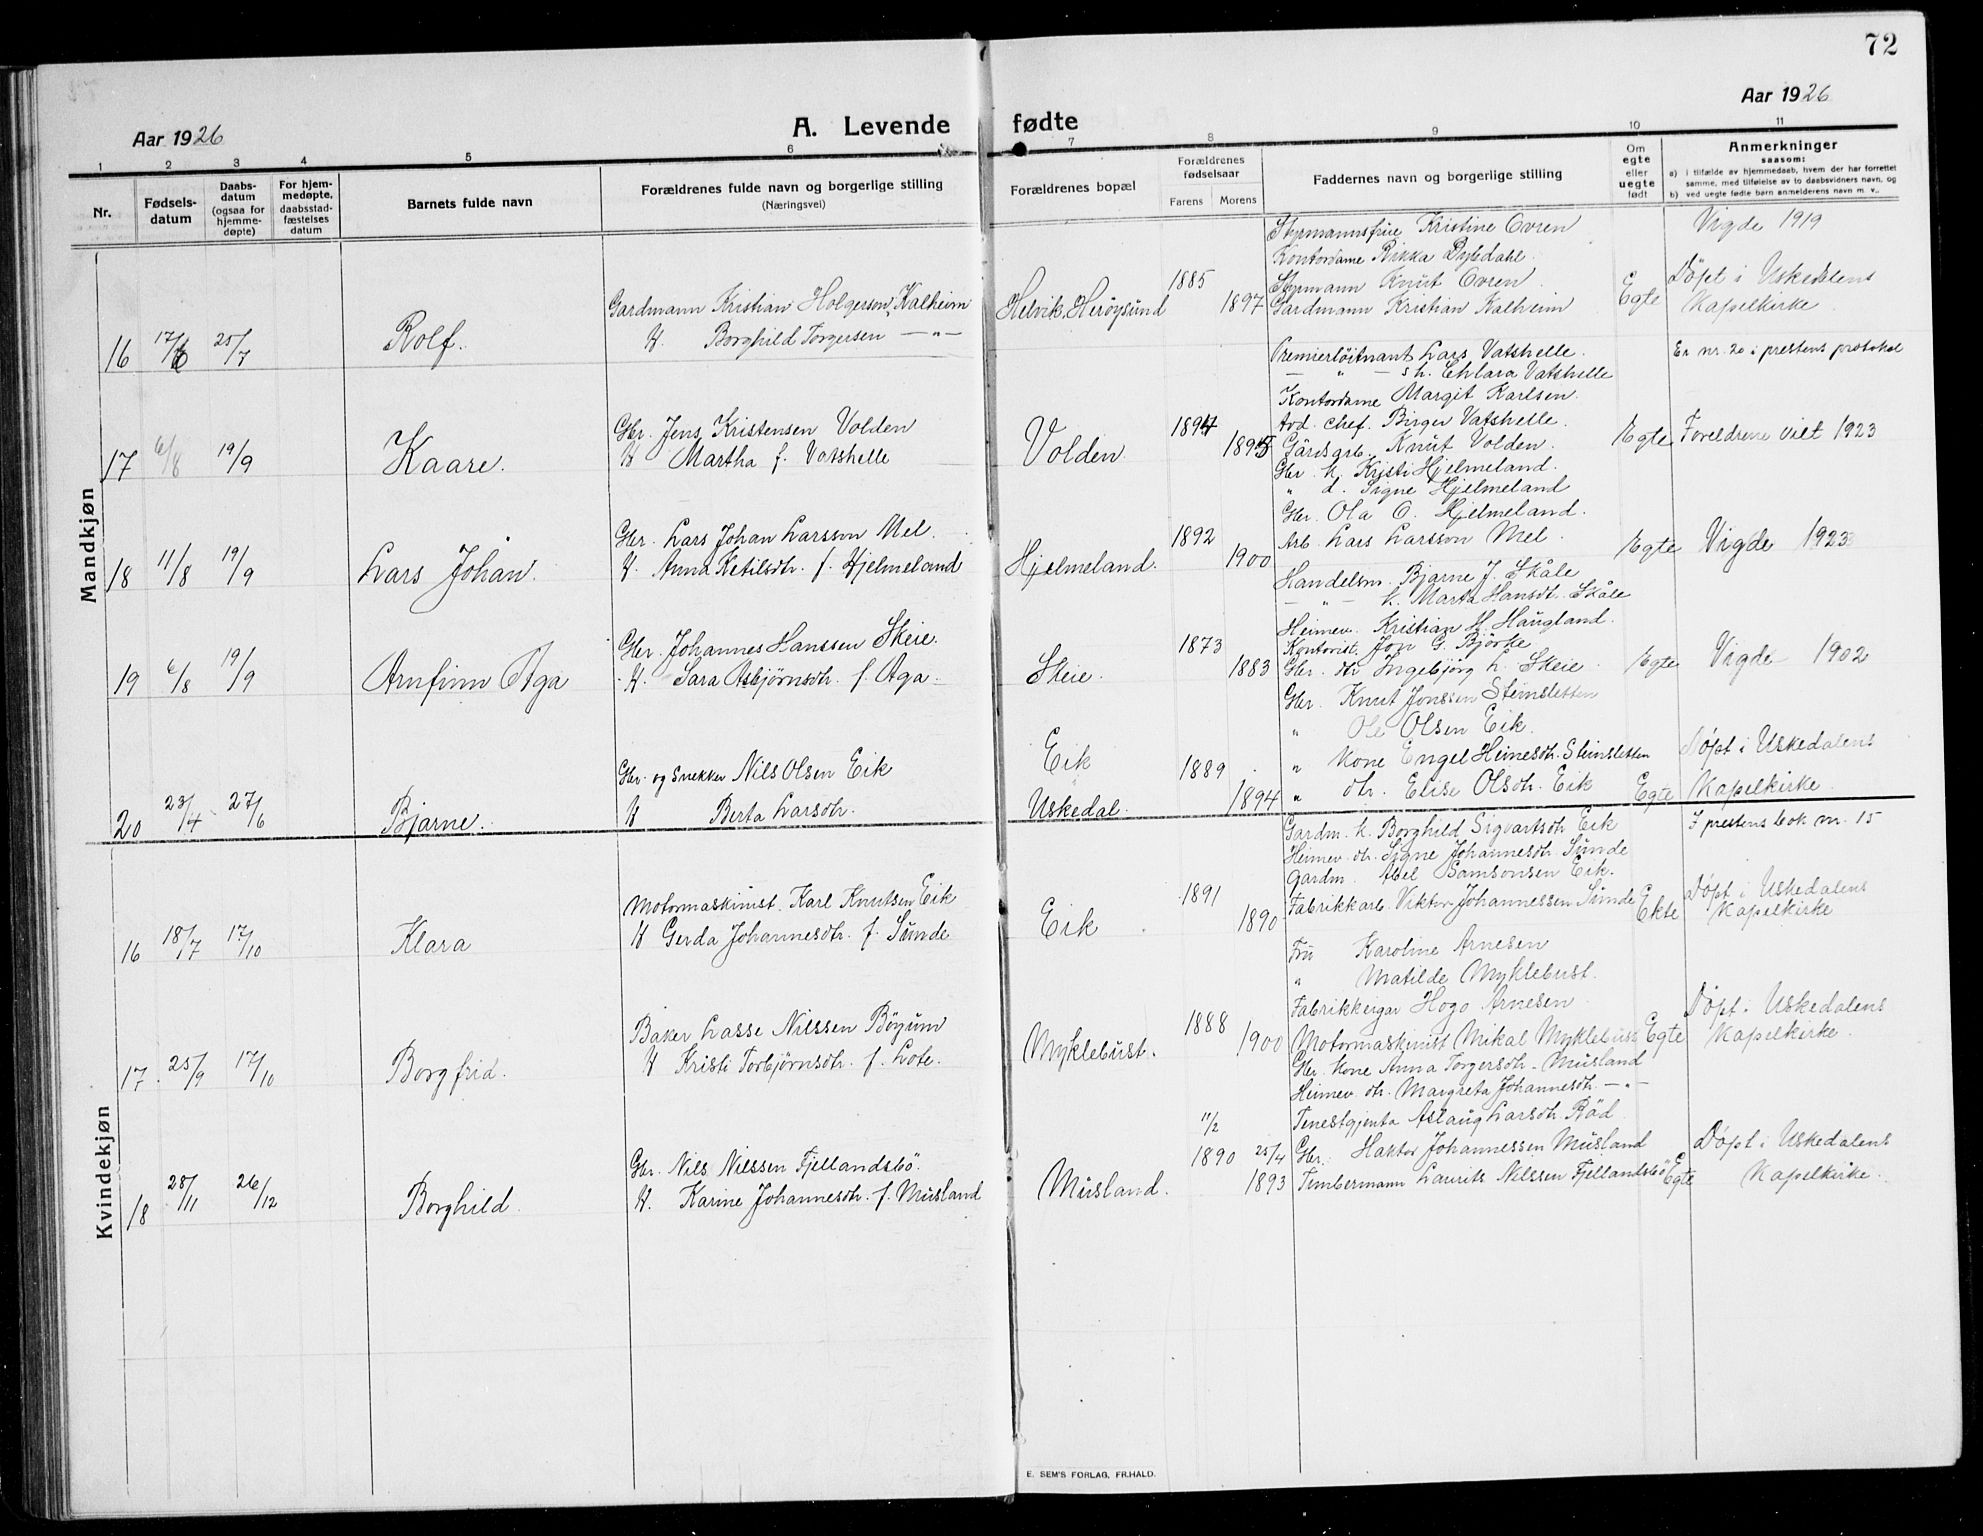 72
Aar 1926
A. Levende fødte
Aar 1926
1 2 3 4 5 6 7 8 9 10 11
Nr.
Fødsels-
datum
Daabs-
datum
(ogsaa for
hjemme-
døpte)
For hjem-
medøpte,
daabsstad-
fæstelses
datum
Barnets fulde navn
Forældrenes fulde navn og borgerlige stilling
(Næringsvei)
Forældrenes bopæl
Forældrenes
fødselsaar
Farens Morens
Faddernes navn og borgerlige stilling
Om
egte
eller
uegte
født
Anmerkninger
saasom:
a) i tilfælde av hjemmedaab, hvem der har forrettet
samme, med tilføielse av to daabsvidners navn, og
b) ved uegte fødte barn anmelderens navn m. v..
Mandkjøn
16 17/6 25/7 Rolf.
Gardmann Kristian Holgerson Kalheim
K. Borghild Torgersen —"—
Helvik, Herøysund
1885
1897
Styrmannsfrue Kristine Ovren
Kontordame Rikka Dybdahl
Styrmann Knut Ovren
Gardmann Kristian Kalheim
Egte
Vigde 1919
Døpt i Uskedalens
Kapelkirke
Er nr. 20 i prestens protokol
17 6/8 19/9 Kaare.
Gbr. Jens Kristensen Volden
K Martha f. Vatshelle
Volden
1894
1895
Premierløitnant Lars Vatshelle.
— " — sh. Chlara Vatshelle
Kontordame Margit Karlsen.
Avd. chef. Birger Vatshelle.
Gårdsarb. Knut Volden.
Egte
Foreldrene viet 1923
18 11/8 19/9 Lars Johan.
Gbr. Lars Johan Larsson Mel.
K. Anna Ketilsdtr. f. Hjelmeland
Hjelmeland.
1892
1900
Gbr. k. Kristi Hjelmeland.
" d. Signe Hjelmeland
Gbr. Ola O. Hjelmeland.
Arb. Lars Larsson Mel.
Egte
Vigde 1923
19 6/8 19/9 Arnfinn Aga
Gbr. Johannes Hanssen Skeie.
K. Sara Asbjørnsdtr. f. Aga.
Skeie.
1873
1883
Handelsm. Bjarne J. Skåle
— " — k. Marta Hansdt. Skåle
Heimev. Kristian H. Haugland.
Kontorist Jon G. Bjørke
Gbr. dtr Ingebjørg L. Skeie.
Egte
Vigde 1902
20 23/4 27/6 Bjarne.
Gbr. og Snekker Nils Olsen Eik
K Berta Larsdtr.
Eik
Uskedal.
1889
1894
Gbr. Knut Jonssen Steinsletten
" Ole Olsen Eik.
" Kone Engel Heinesdtr. Steinsletten
" dtr. Elise Olsdtr. Eik
Egte
Døpt i Uskedalens
Kapelkirke.
I prestens bok nr. 15
Kvindekjøn
16 18/7 17/10 Klara
Motormaskinist. Karl Knutsen Eik
K Gerda Johannesdtr. f. Sunde
Eik
1891
1890
Gardm. k. Borghild Sigvartsdtr Eik
Heimev. dtr. Signe Johannesdtr. Sunde
Gardm. Abel Samsonsen Eik.
Fabrikkarb. Viktor Johannessen Sunde
Ekte
Døpt i Uskedalens
Kapelkirke
17 25/9 17/10 Borgfrid.
Baker Lasse Nilssen Bøyum
K Kristi Torbjørnsdtr. f. Lote.
Myklebust.
1888
1900
Fru Karoline Arnesen
" Matilde Myklebust.
Fabrikkeigar Hogo Arnesen
Motormaskinist Mikal Myklebust
Egte
Døpt i Uskedalens
Kapelkirke.
18 28/11 26/12 Borghild.
Gbr. Nils Nilssen Fjellandsbø.
K. Karine Johannesdtr. f. Musland
Musland.
11/2
1890
25/4
1893
Gbr. Kone Anna Torgersdtr. Musland
Heimev. dtr. Margreta Johannesdtr. —"—
Tenestgjenta Aslaug Larsdtr. Rød
Gbr. Haktor Johannessen Musland
Timbermann Laurits Nilssen Fjellandsbø
Egte
Døpt i Uskedalens
Kapelkirke.
E. SEM'S FORLAG, FR.HALD.